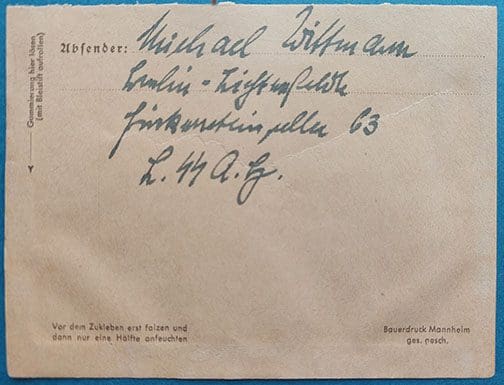 Gummierung hier lösen
(mit Bleistift aufrollen)
Absender: Michael Wittmann
Berlin-Lichterfelde
63
L. SS A.H.
Vor dem Zukleben erst falzen und
dann nur eine Hälfte anfeuchten
Bauerdruck Mannheim
ges. gesch.